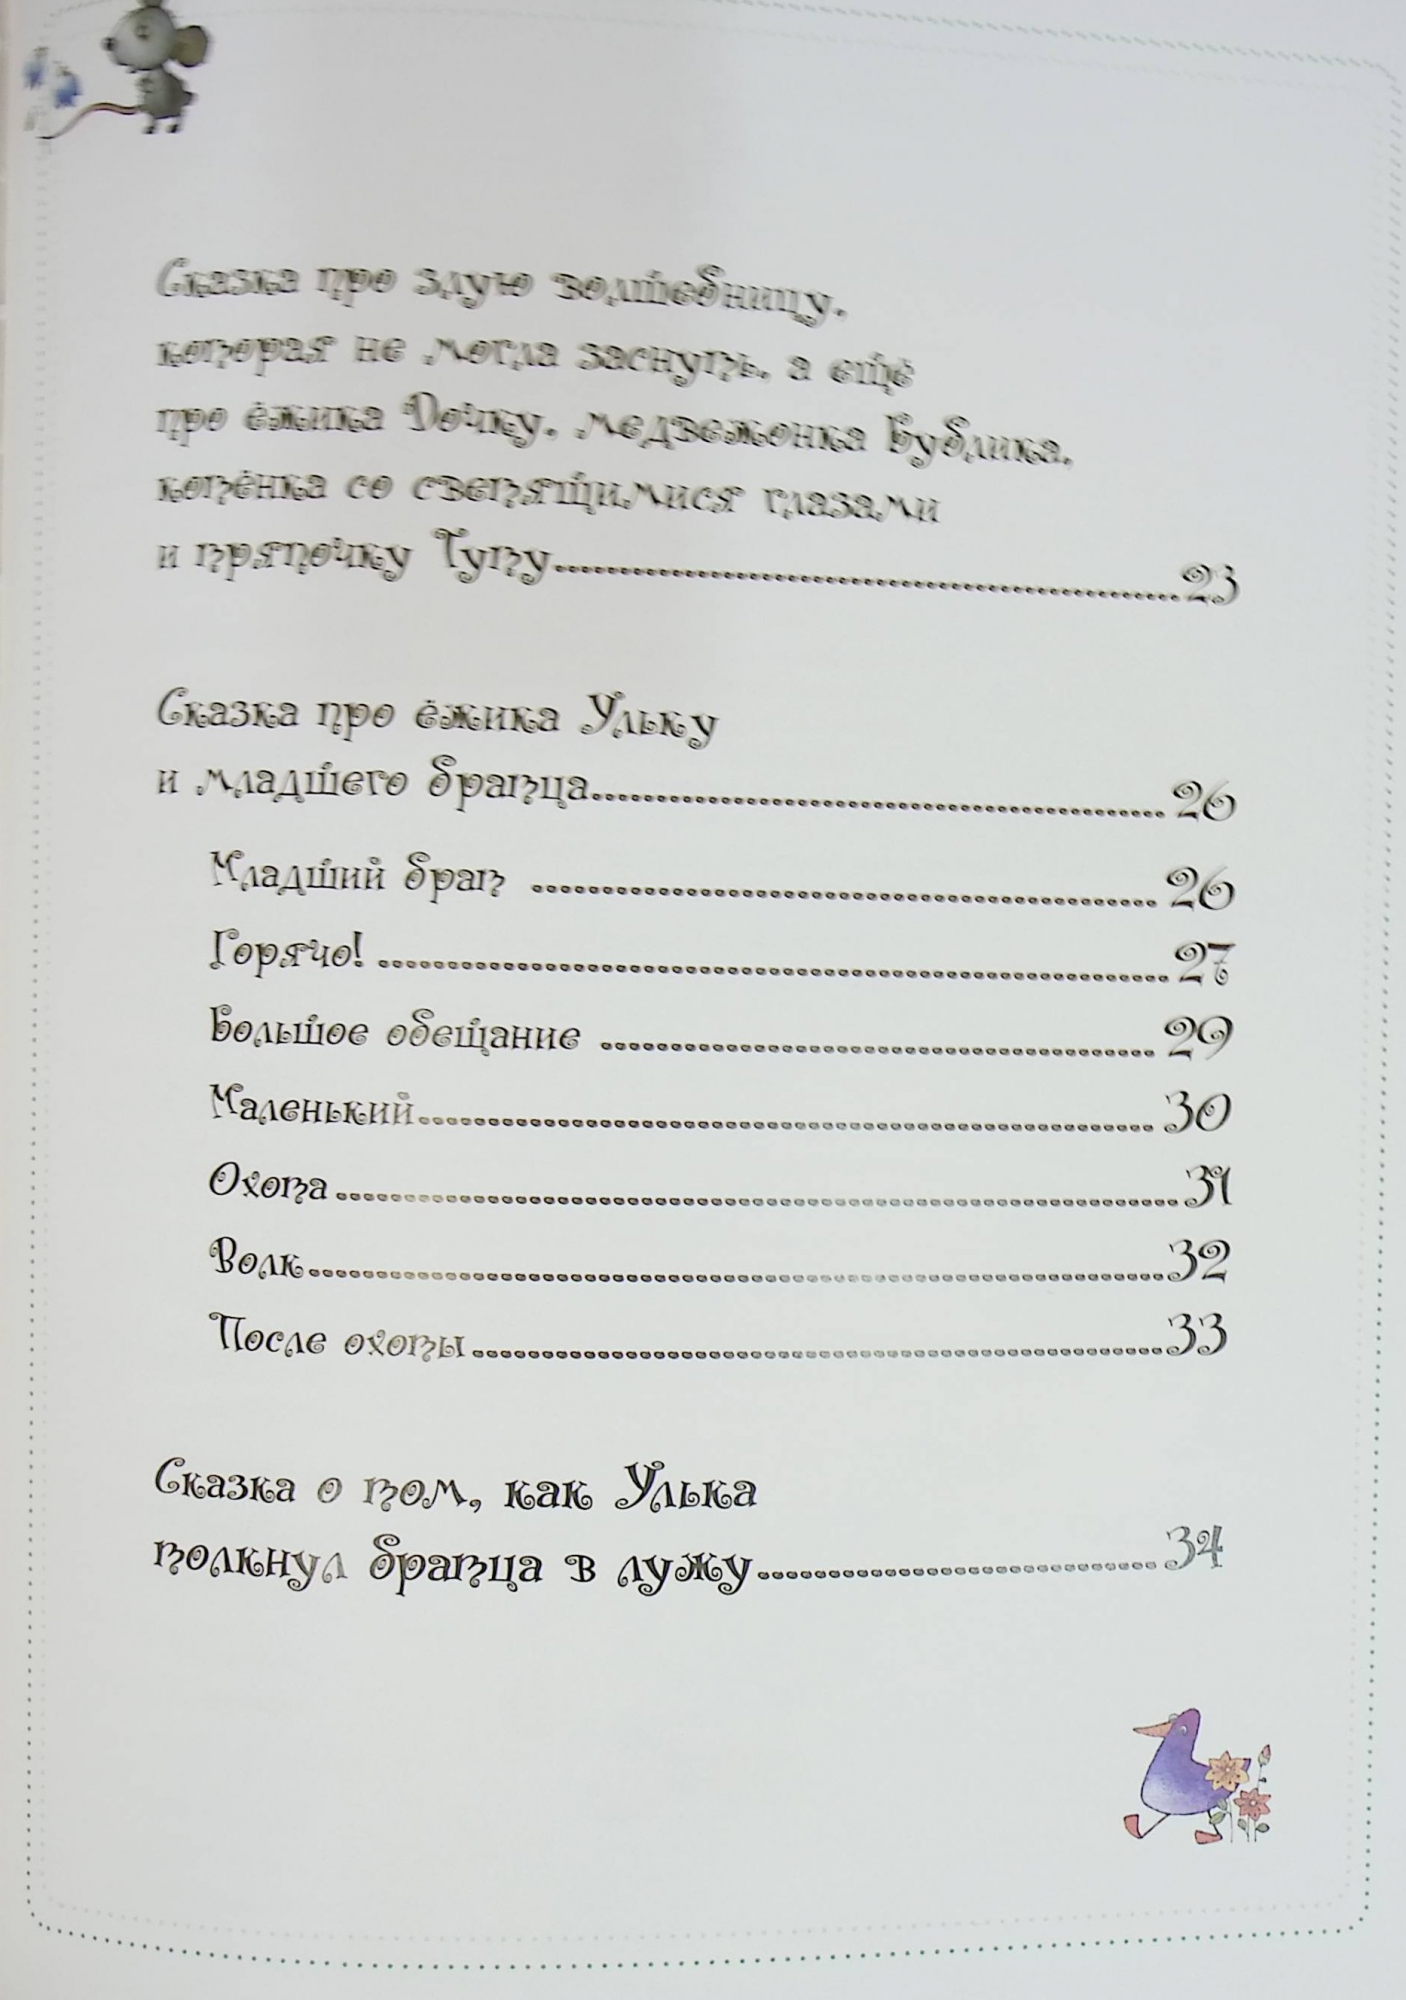 Сказка про злую волшебницу,
которая не могла заснуть, а ещё
про ёжика Дочку, медвежонка Бублика,
котёнка со светящимися глазами
и тряпочку Тупу.....23
Сказка про ёжика Ульку
и младшего братца.....26
Младший брат.....26
Горячо!.....27
Большое обещание.....29
Маленький.....30
Охота.....31
Волк.....32
После охоты.....33
Сказка о том, как Улька
толкнул братца в лужу.....34